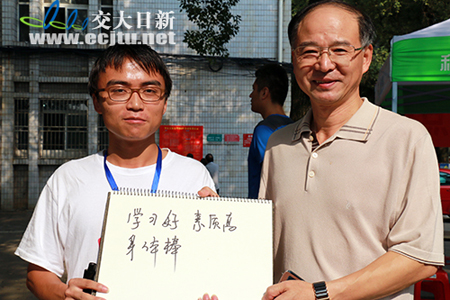 交大日新
www.ecjtu.net
学习好 素质高
身体棒